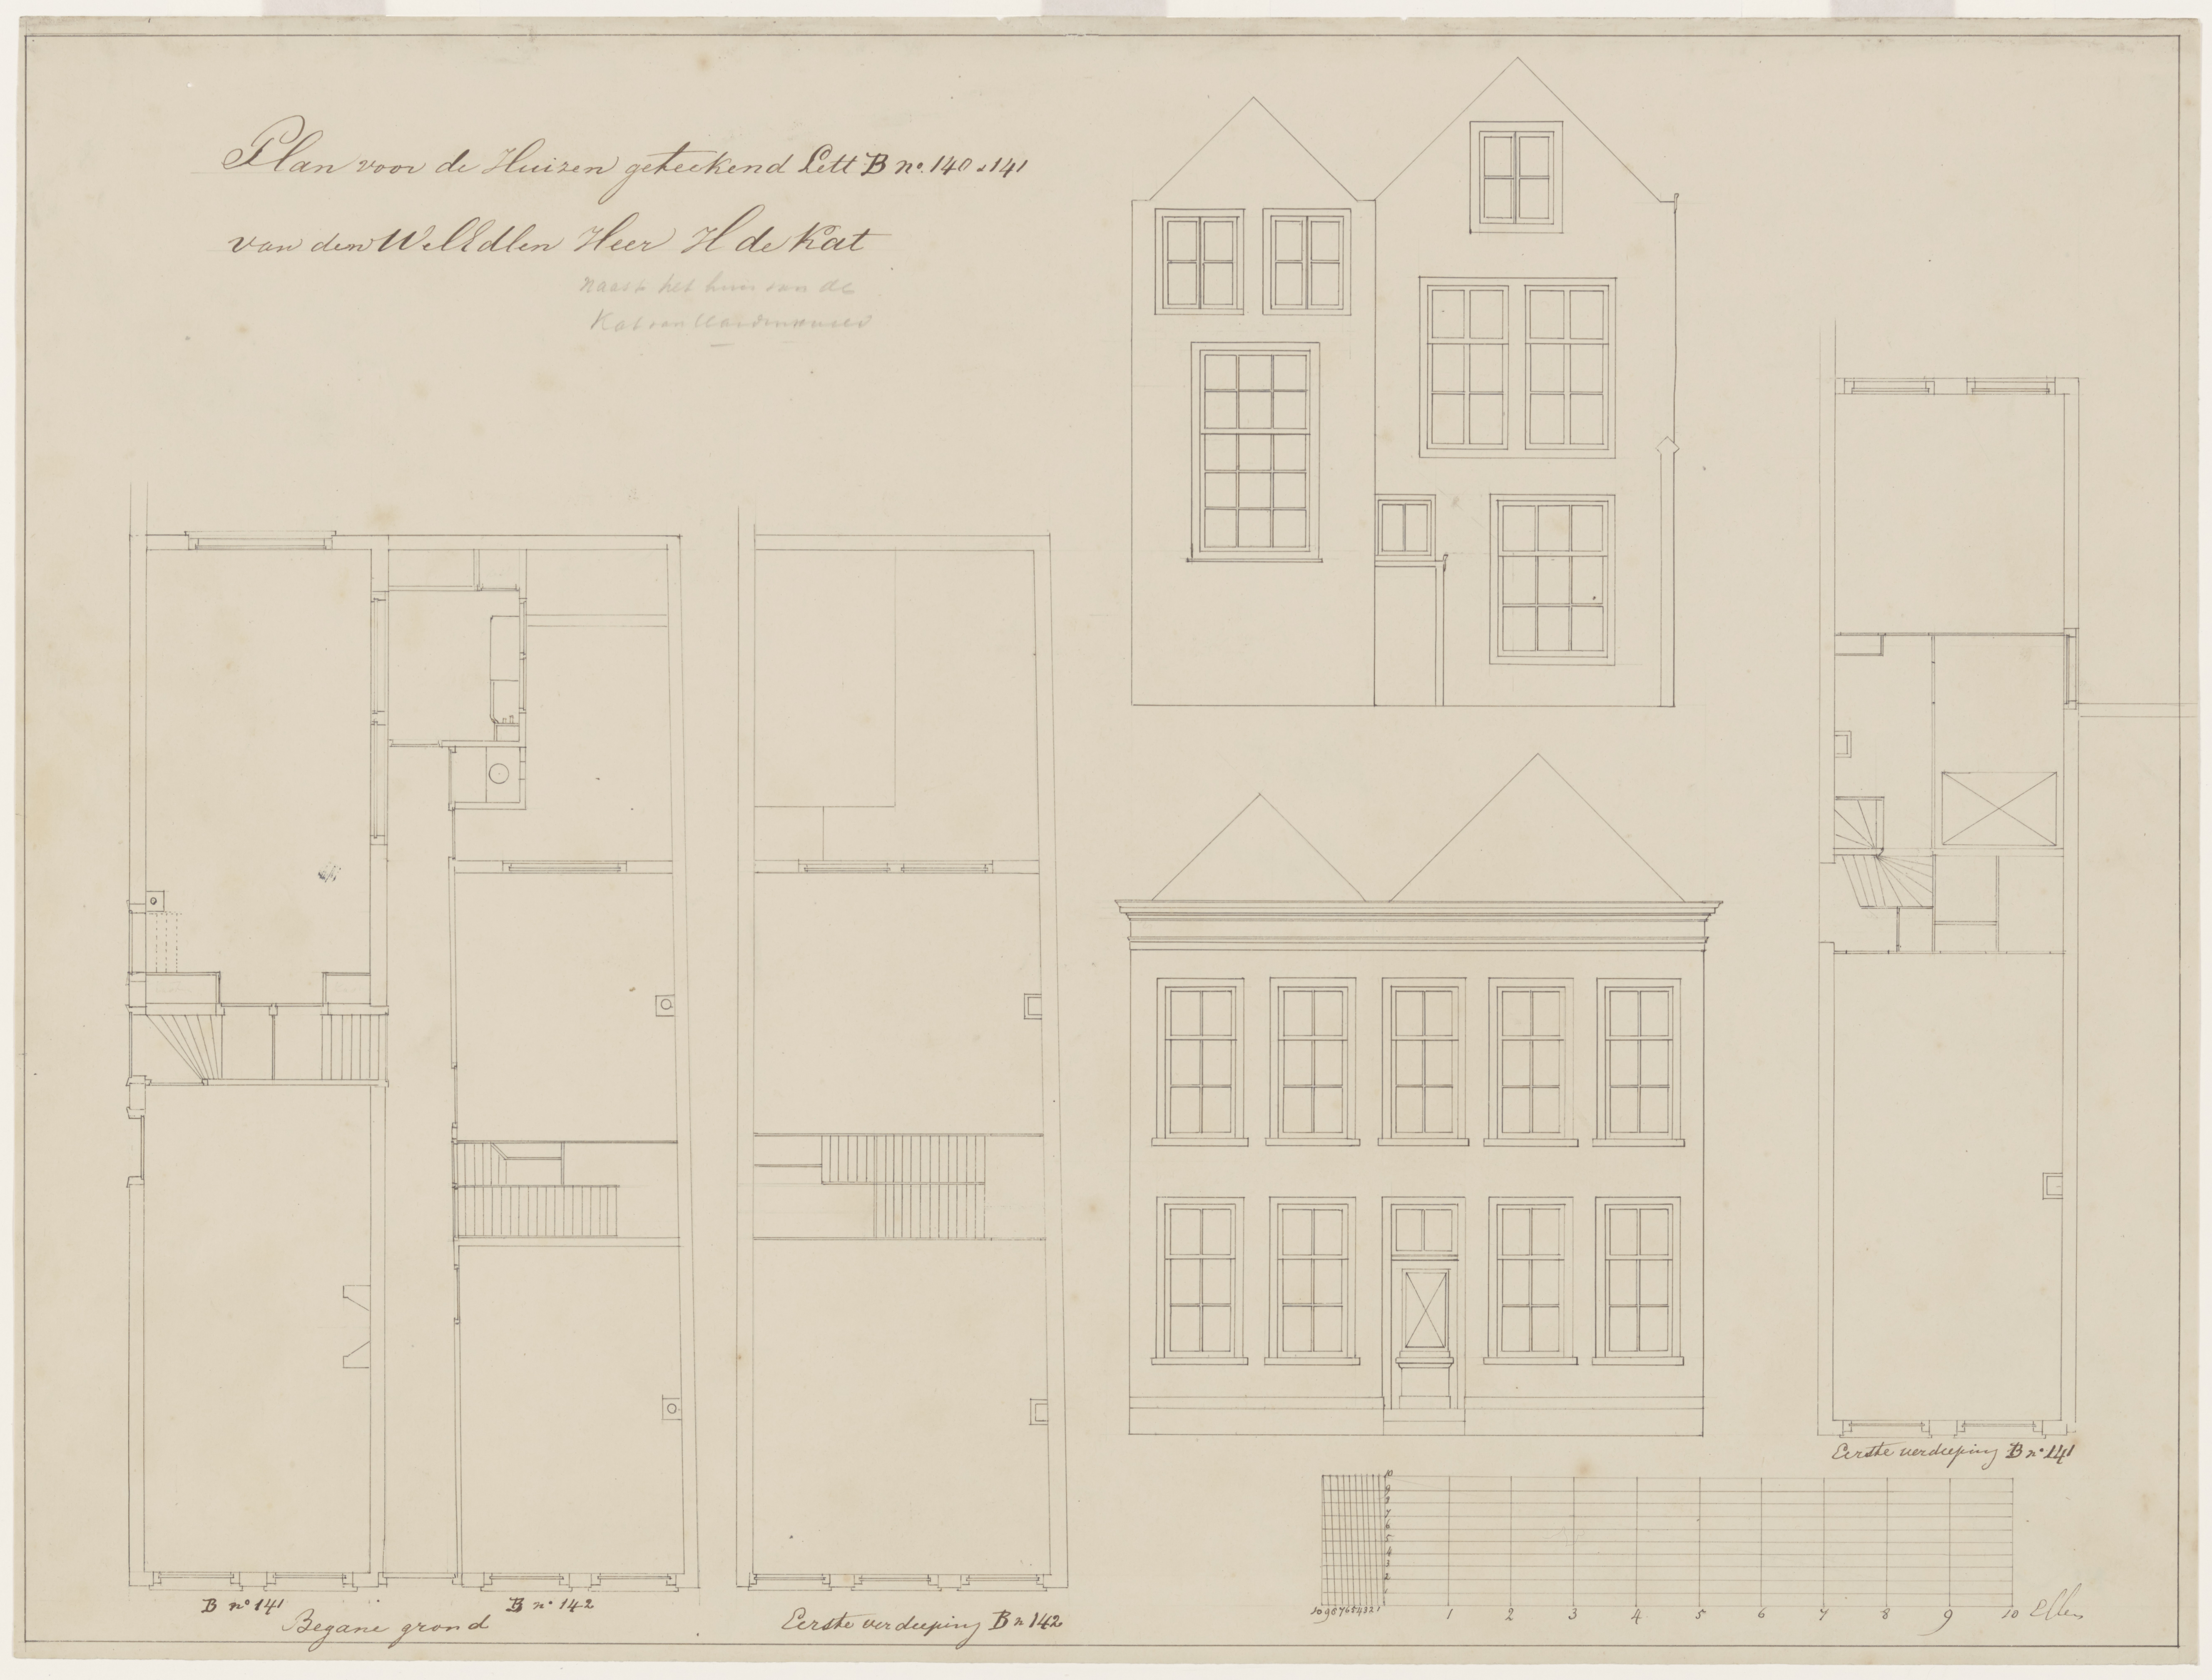 Plan voor de Huizen geteekend Lett B no. 140 & 141
van den WelEdlen Heer H de Kat
naast het huis van de
Kat van
B no 141
B no 142
Begane grond
Eerste verdeeping B n 142
Eerste verdeeping B no 141
10
9
8
7
6
5
4
3
2
1
10 9 8 7 6 5 4 3 2 1 1 2 3 4 5 6 7 8 9 10 Ellen